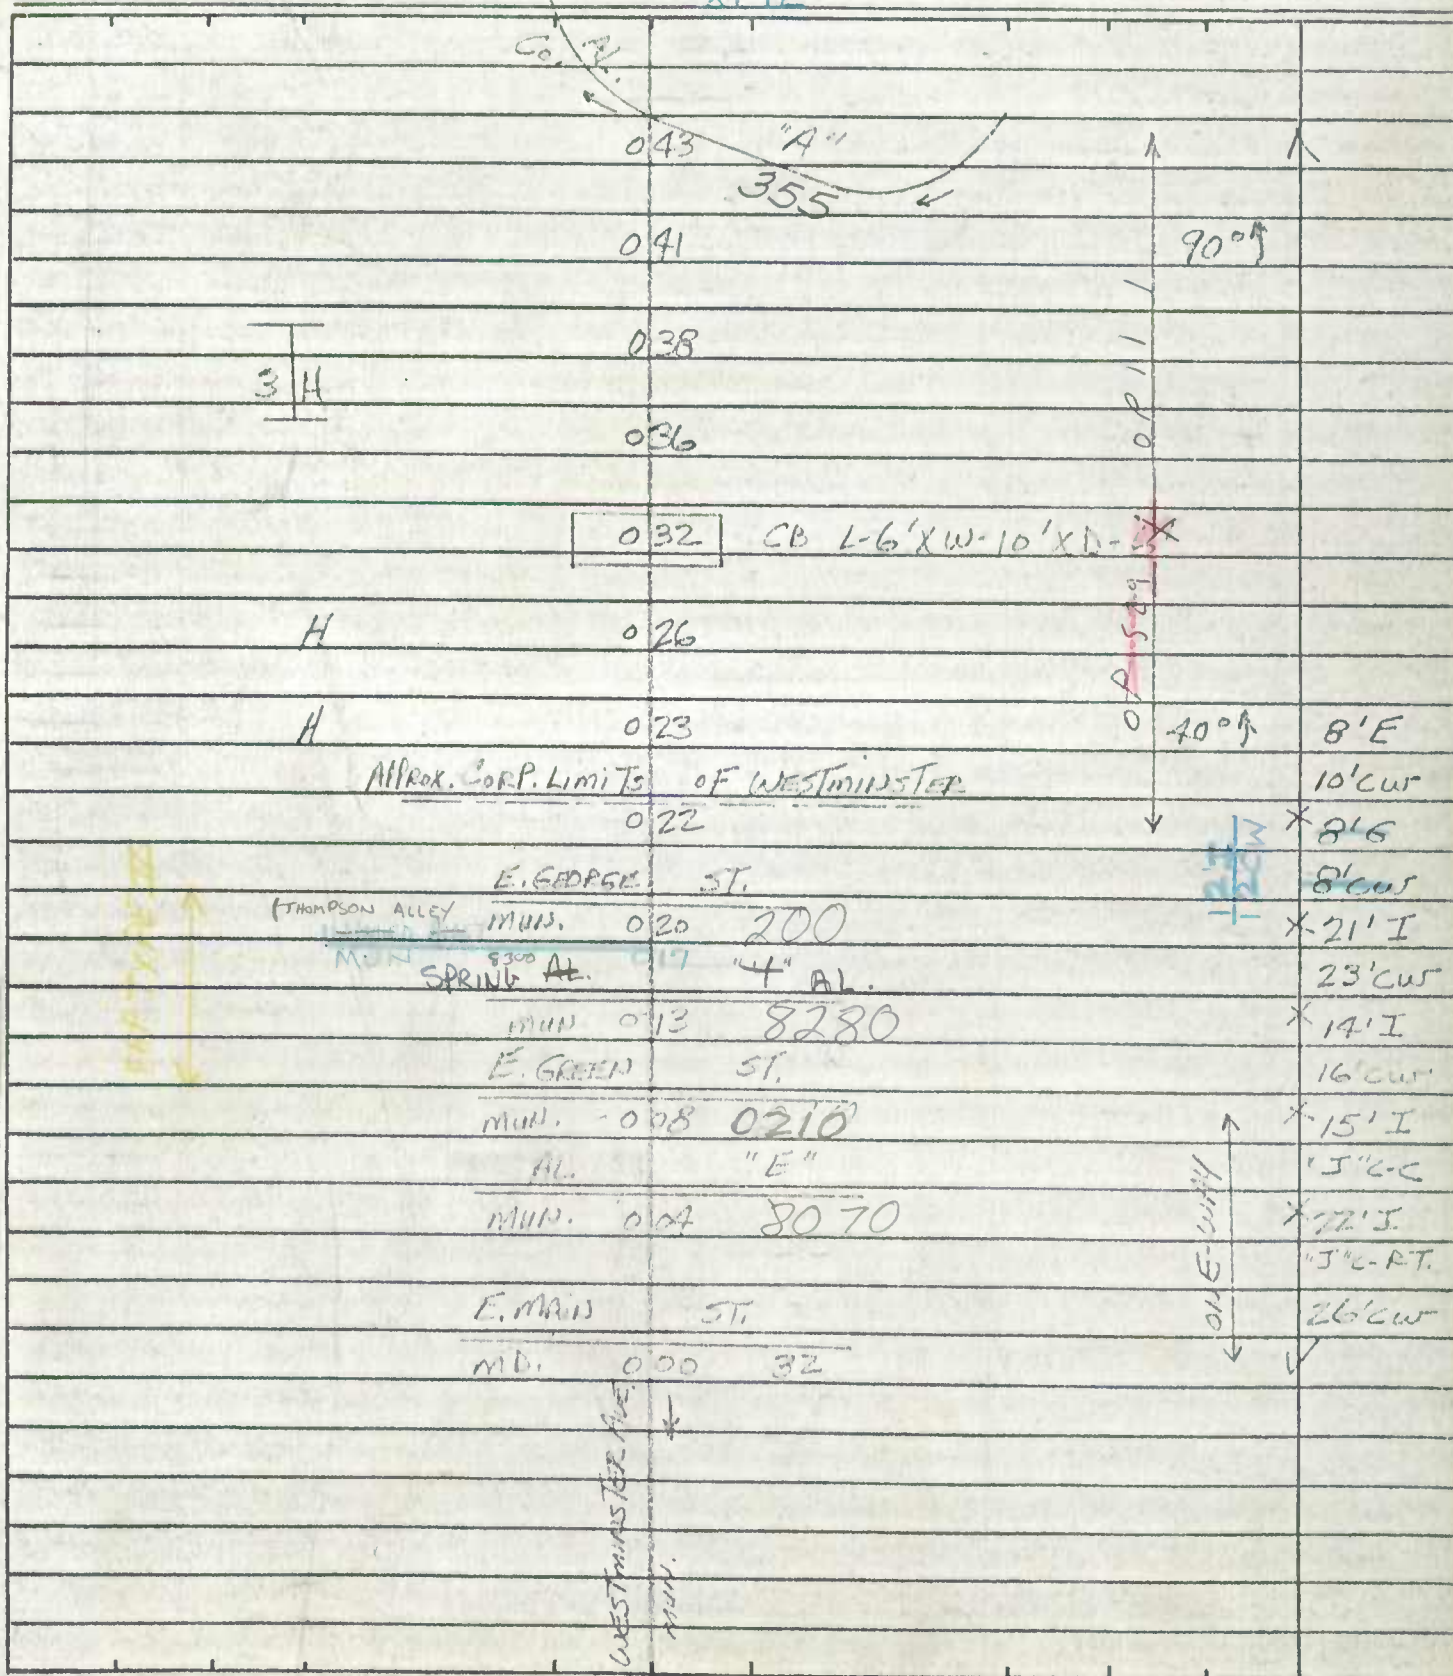 Co. AL.
0.43 "A"
355
0.41 90°
0.38
3 H
0.36
0.32 CB L-6'XW-10'XD-
H 0.26
H 0.23 40° 8'E
APPROX. CORP. LIMITS OF WESTMINSTER 10'CW
0.22 X 8'G
E. GEORGE ST. 8'CW
(THOMPSON ALLEY MUN. 0.20 200 X-21'I
MUN 0.17
SPRING AL. 8300 "4" AL. 23'CW
MUN 0.13 8280 X 14'I
E. GREEN ST. 16'CW
MUN. 0.08 0210 X-15'I
AL. "E" "J"C-C
MUN. 0.04 8070 X-22'I
"J"C-RT.
E. MAIN ST. 26'CW
MD. 0.00 32
ONE-WAY
WESTMINSTER AVE.
MUN.